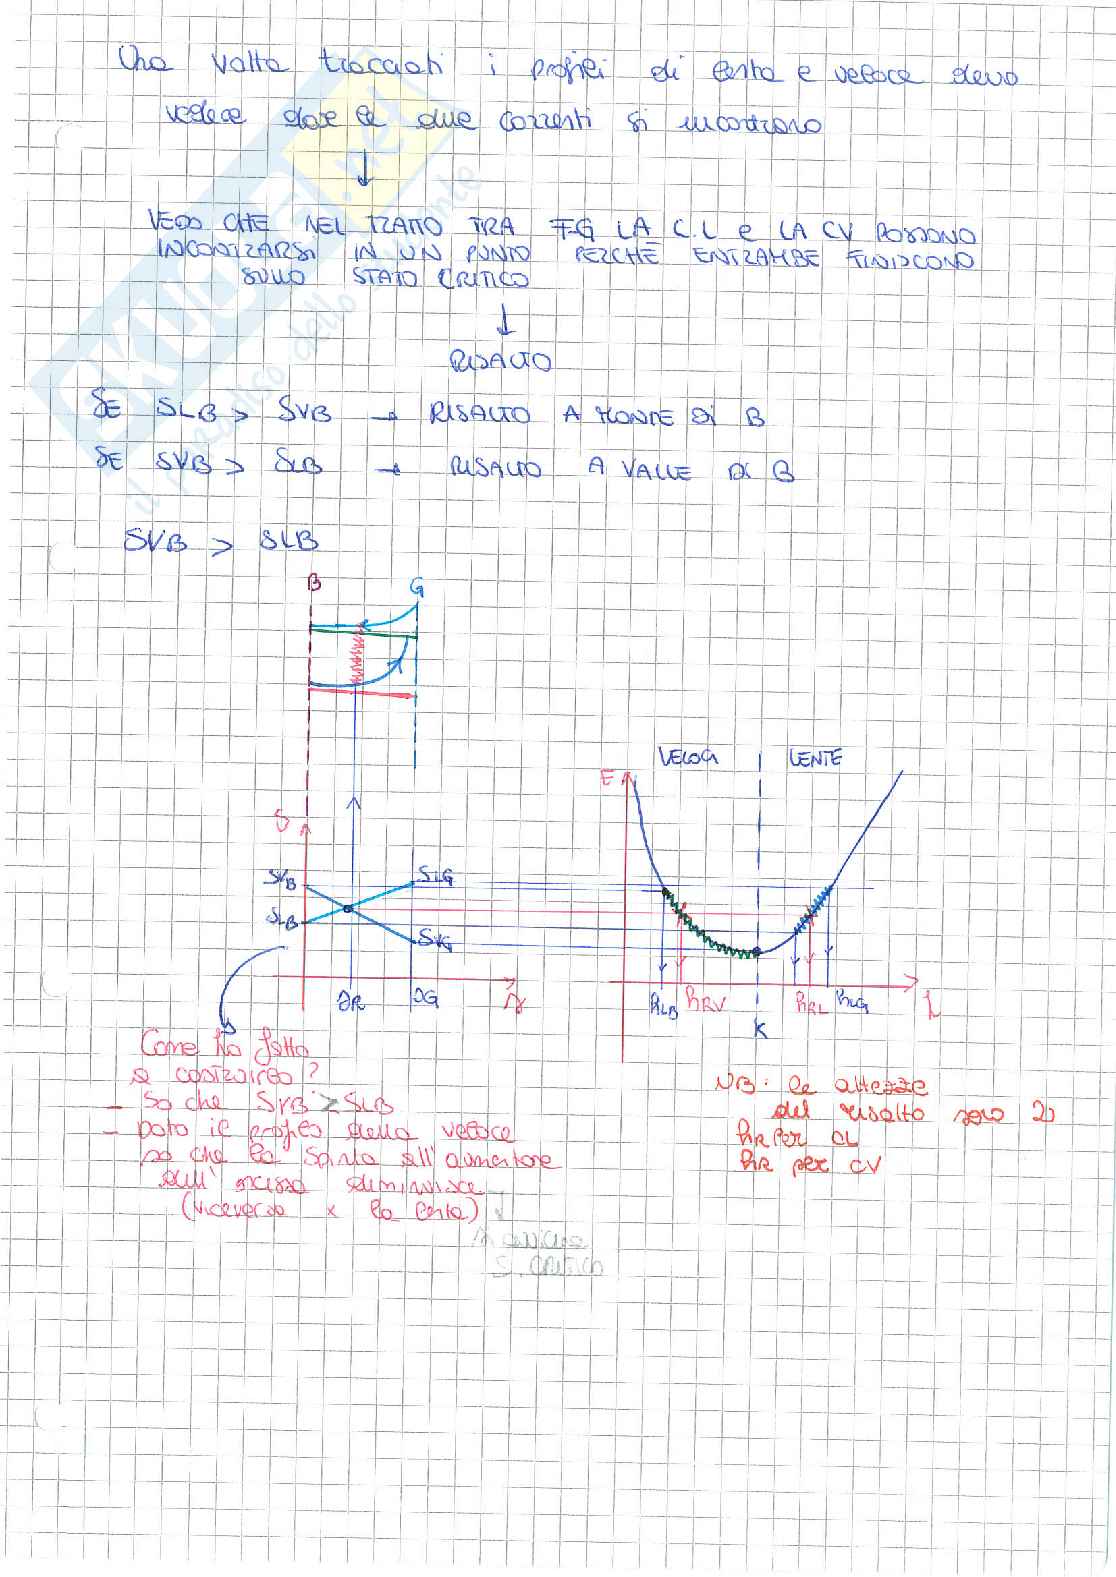 Una volta tracciati i profili di lenta e veloce devo
vedere dove le due correnti si incontrano
VEDO CHE NEL TRATTO TRA FG LA C.L e LA CV POSSONO
INCONTRARSI IN UN PUNTO PERCHÈ ENTRAMBE FINISCONO
SULLO STATO CRITICO
RISALTO
SE SLB > SVB → RISALTO A MONTE DI B
SE SVB > SLB → RISALTO A VALLE DI B
SVB > SLB
B G
VELOCI LENTE
E
S
SVB SLG
SLB
SVG
hLB hRV hRL hLG
K
Come ho fatto
a costruirlo?
- so che SVB > SLB
- dato il profilo della veloce
so che la spinta all'aumentare
dell' ascissa diminuisce
(viceversa x la lenta)
si avvicina
S. CRITICO
NB: le altezze
del risalto sono 2
hR per CL
hR per CV
skuola.net
il paradiso dello studente